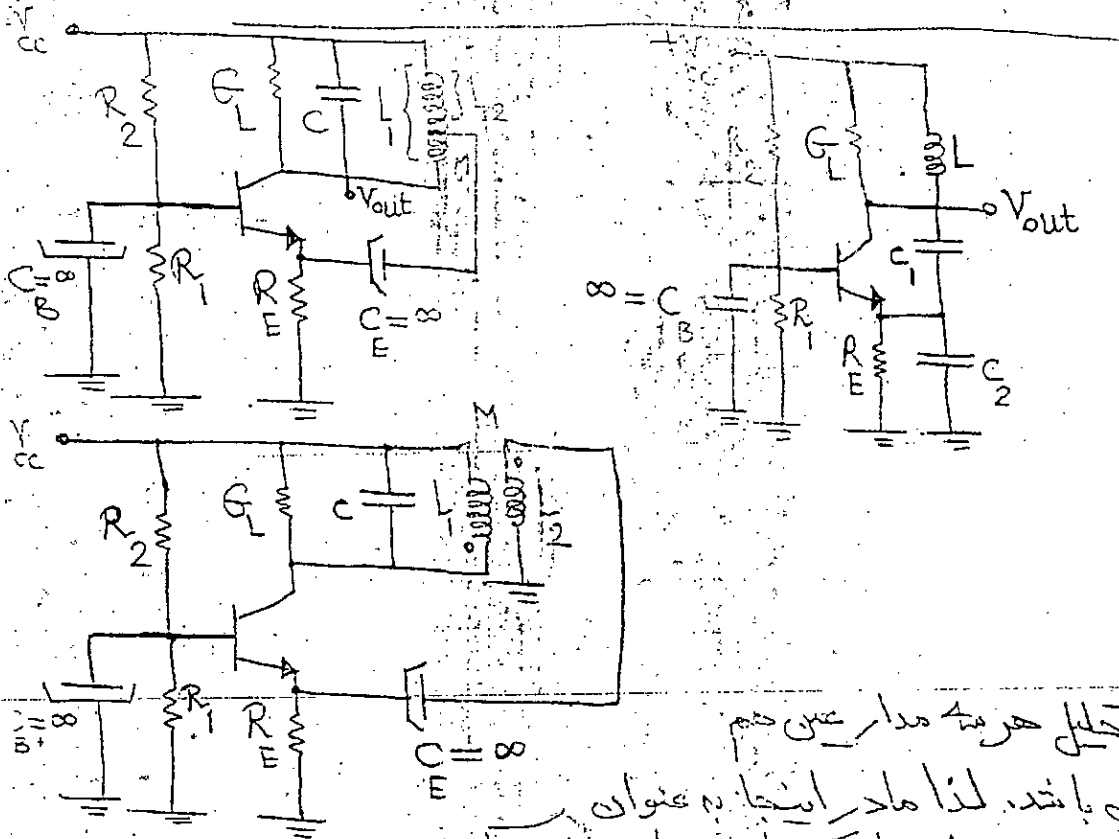 V CC
R 2
G L
C
L 1
2
M
Vout
C = ∞ B
R 1
R E
C = ∞ E
+
G L
L
Vout
C 1
∞ = C B
R 1
R E
C 2
V CC
R 2
G L
C
L 1
M
2
= ∞ B
R 1
R E
C = ∞ E
تحلیل هر سه مدار عین هم
می باشد. لذا ما در اینجا به عنوان